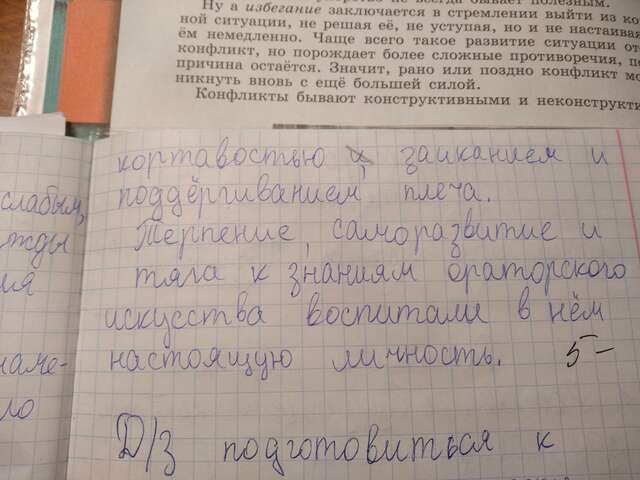 Ну а избегание заключается в стремлении выйти из ко
ной ситуации, не решая её, не уступая, но и не настаивая
ём немедленно. Чаще всего такое развитие ситуации от
конфликт, но порождает более сложные противоречия, по
причина остаётся. Значит, рано или поздно конфликт мо
никнуть вновь с ещё большей силой.
Конфликты бывают конструктивными и неконструкти
слабым,
жды
ия
наме-
ло
кортавостью , заиканием и
поддёргиванием плеча.
Терпение, саморазвитие и
тяга к знаниям ораторского
искусства воспитали в нём
настоящую личность. 5-
Д/З подготовиться к